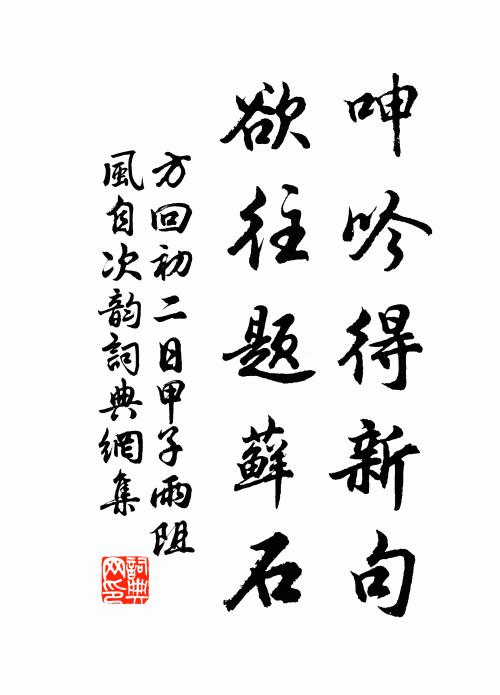 呻吟得新句
欲往題蘚石
方回初二日甲子雨阻
風自次韵詞典網集
詞典网印